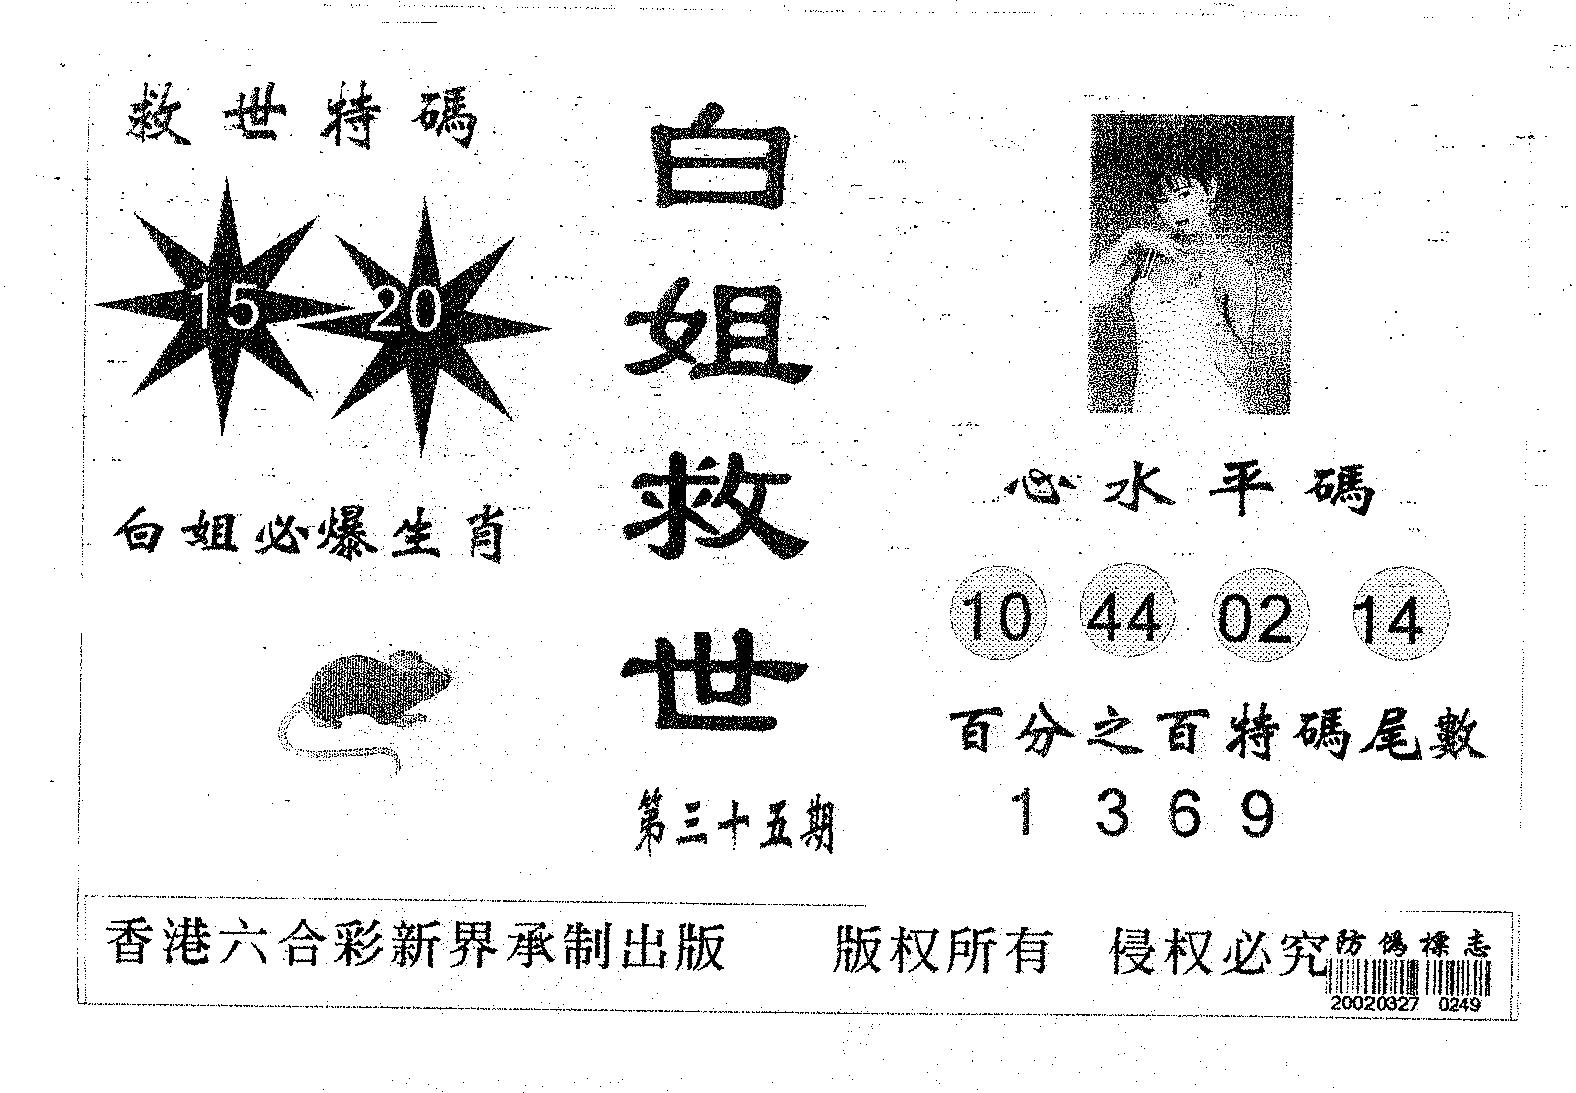 救世特碼
15 20
白姐必爆生肖
白姐救世
第三十五期
心水平碼
10 44 02 14
百分之百特碼尾數
1 3 6 9
香港六合彩新界承制出版 版权所有 侵权必究
防偽標志
20020327 0249